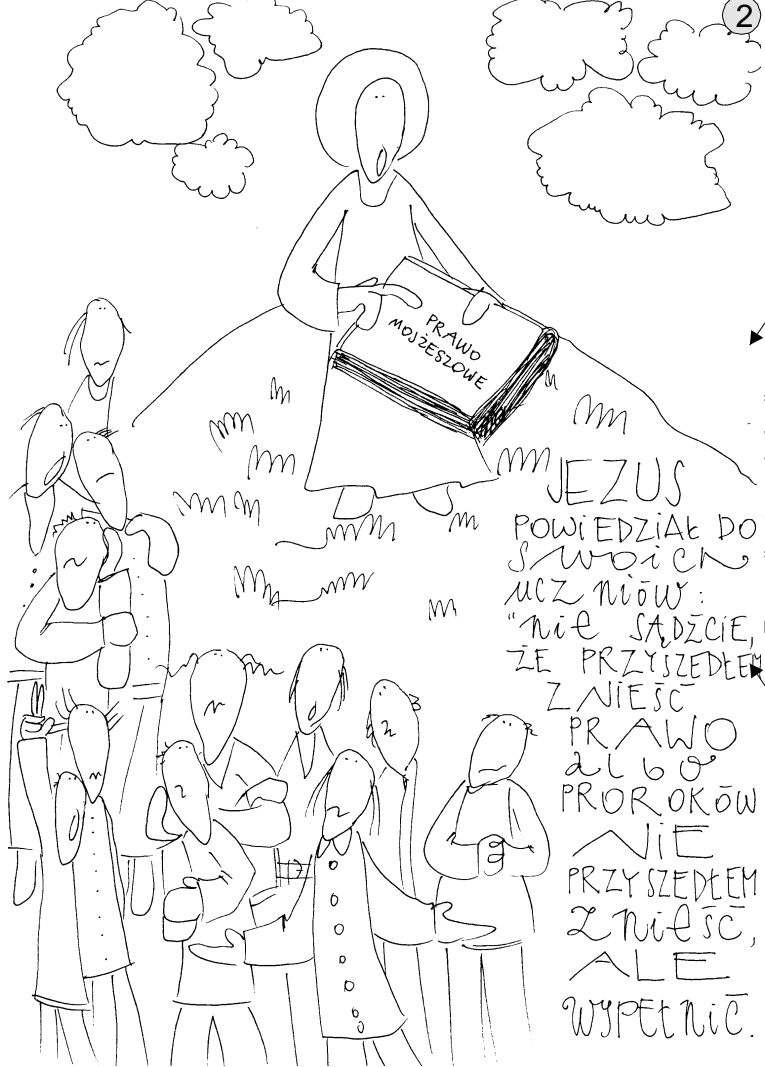 2
PRAWO
MOJŻESZOWE
JEZUS
POWiEDZiAŁ DO
Swoich
uczniów:
"nie SĄDŹCIE,
ŻE PRZYSZEDŁEM
ZNIEŚĆ
PRAWO
albo
PROROKÓW
NiE
PRZYSZEDŁEM
ZNieść,
ALE
WYPEŁNiĆ.